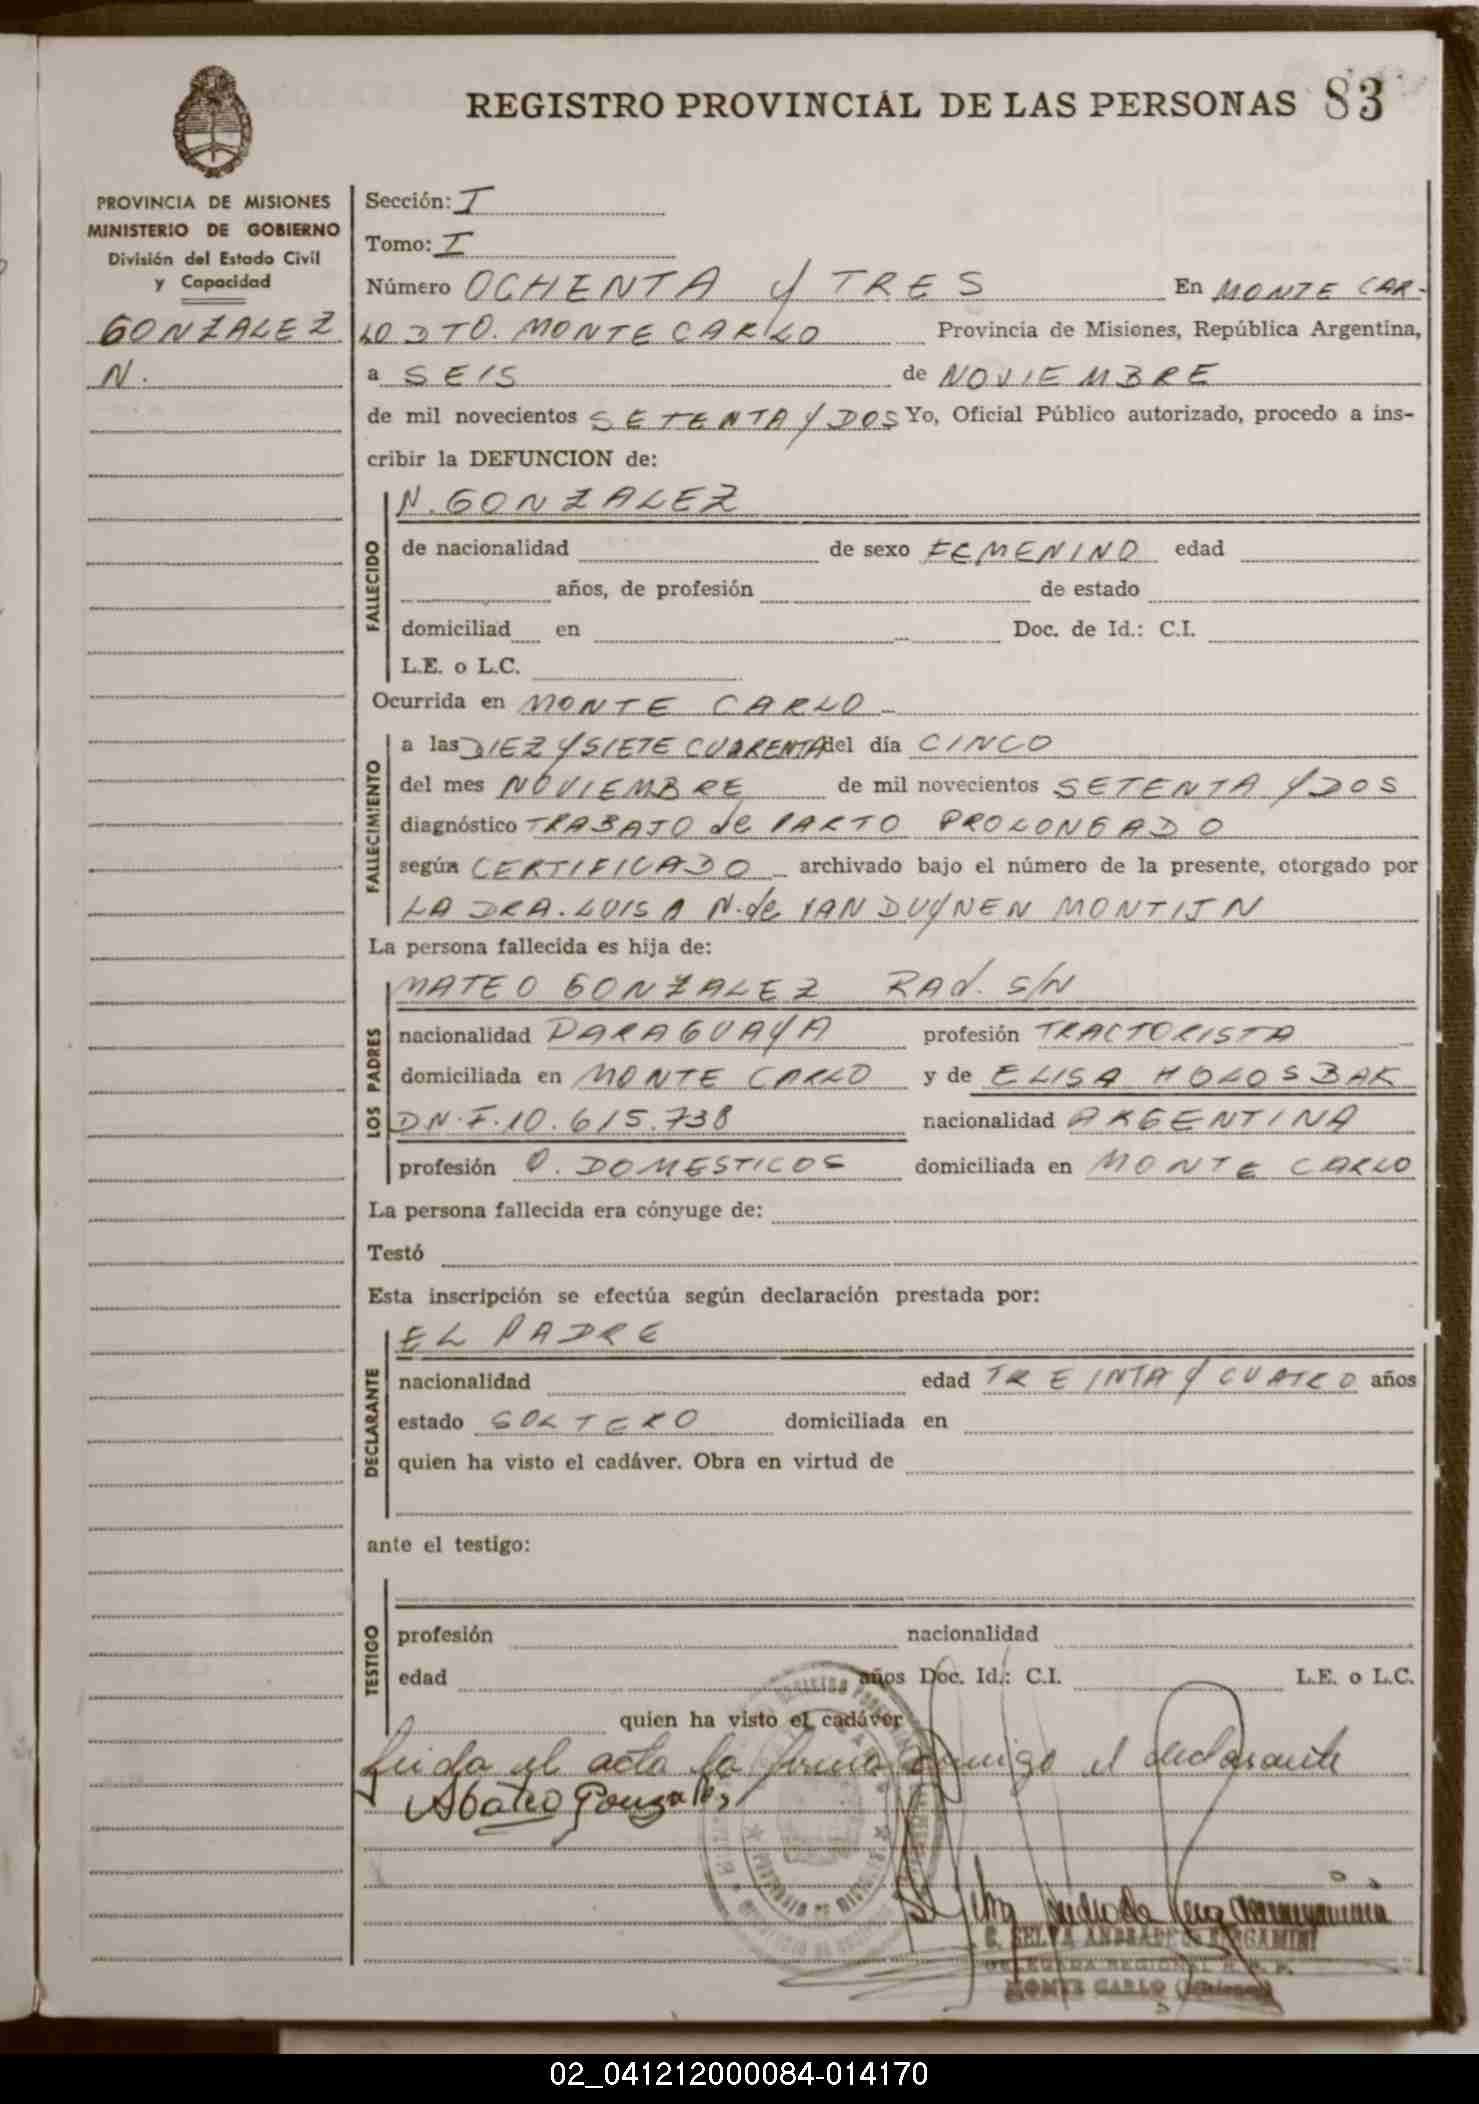 REGISTRO PROVINCIAL DE LAS PERSONAS 83
PROVINCIA DE MISIONES
MINISTERIO DE GOBIERNO
División del Estado Civil
y Capacidad
GONZALEZ
N.
Sección: I
Tomo: I
Número OCHENTA Y TRES En MONTE CAR-
LO DTO. MONTE CARLO Provincia de Misiones, República Argentina,
a SEIS de NOVIEMBRE
de mil novecientos SETENTA Y DOS Yo, Oficial Público autorizado, procedo a ins-
cribir la DEFUNCION de:
FALLECIDO
N. GONZALEZ
de nacionalidad de sexo FEMENINO edad
años, de profesión de estado
domiciliad en Doc. de Id.: C.I.
L.E. o L.C.
Ocurrida en MONTE CARLO
FALLECIMIENTO
a las DIEZ Y SIETE CUARENTA del día CINCO
del mes NOVIEMBRE de mil novecientos SETENTA Y DOS
diagnóstico TRABAJO de PARTO PROLONGADO
según CERTIFICADO archivado bajo el número de la presente, otorgado por
LA DRA. LUISA N. de VAN DUYNEN MONTIJN
La persona fallecida es hija de:
LOS PADRES
MATEO GONZALEZ RAd. S/N
nacionalidad PARAGUAYA profesión TRACTORISTA
domiciliada en MONTE CARLO y de ELISA HOLOSBAK
DN.I.10.615.738 nacionalidad ARGENTINA
profesión Q. DOMESTICOS domiciliada en MONTE CARLO
La persona fallecida era cónyuge de:
Testó
Esta inscripción se efectúa según declaración prestada por:
DECLARANTE
EL PADRE
nacionalidad edad TREINTA Y CUATRO años
estado SOLTERO domiciliada en
quien ha visto el cadáver. Obra en virtud de
ante el testigo:
TESTIGO
profesión nacionalidad
edad años Doc. Id.: C.I. L.E. o L.C.
quien ha visto el cadáver
Leida el acta la firma conmigo el declarante
Mateo Gonzalez
C. SELVA ANDRADE de BERGAMINI
DELEGADA REGIONAL R. P. P.
MONTE CARLO (Misiones)
02_041212000084-014170